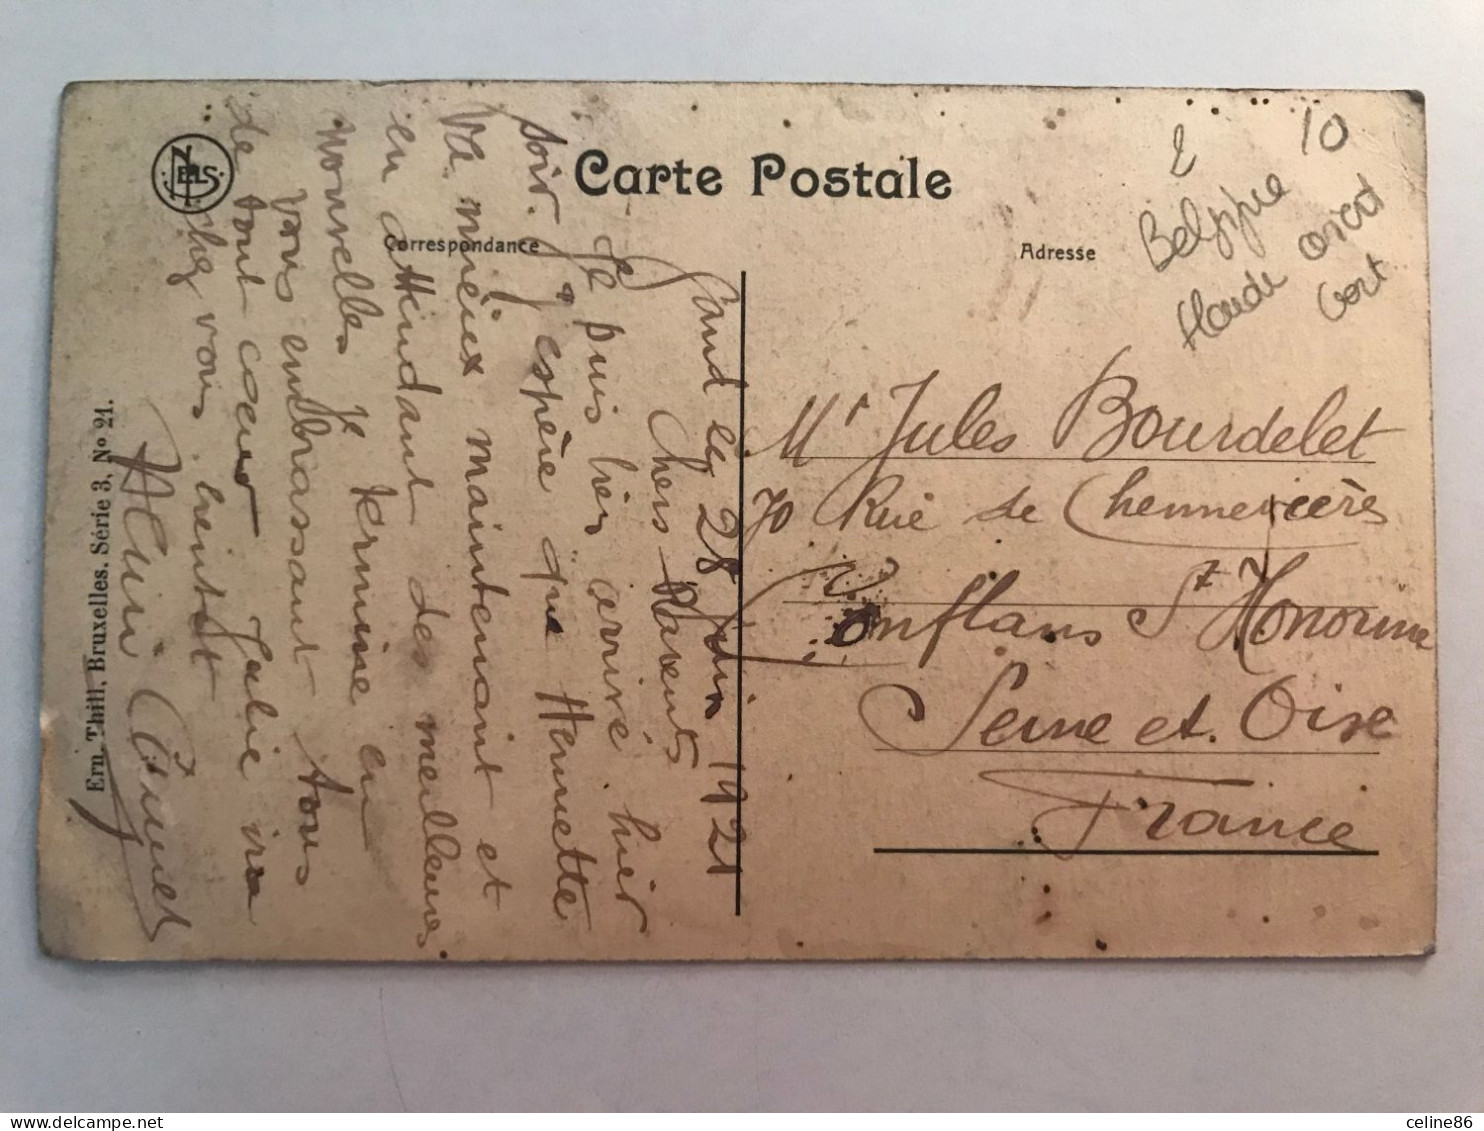 Carte Postale
Correspondance
Adresse
NELS
Ern. Thill, Bruxelles. Série 3, Nº 21.
Gand le 28 Juin 1921
Chers Parents
Je puis bien arrivé hier
soir. J'espère que Hermette
va mieux maintenant et
en attendant des meilleures
nouvelles je termine en
vous embrassant tous
de tout cœur Julie ira
chez vous bientot
Mr Jules Bourdelet
70 Rue de Chennevières
Conflans St Honorine
Seine et Oise
France
10
Belgique
vert
celine86